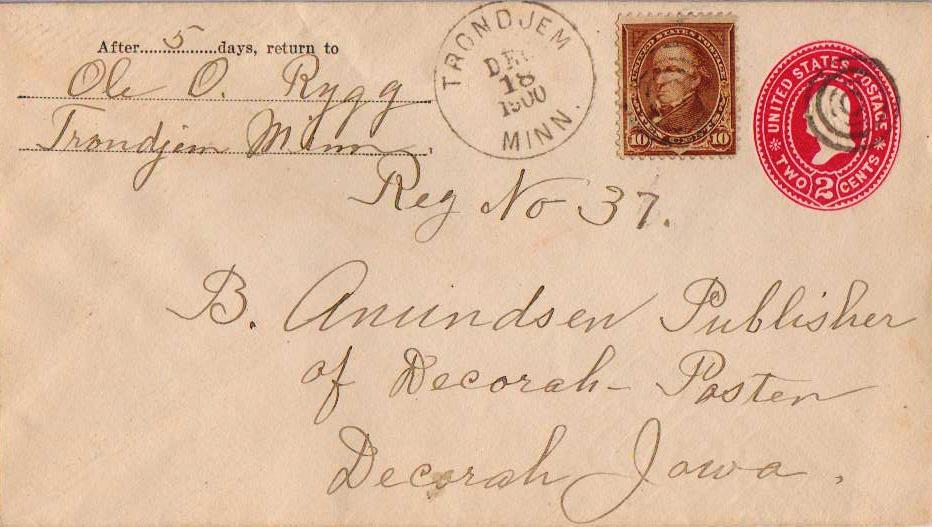 After 5 days, return to
Ole O. Rygg
Trondjem Minn.
TRONDJEM
DEC
18
1900
MINN.
UNITED STATES POSTAGE
10 10
UNITED STATES POSTAGE
TWO 2 CENTS
Reg No 37.
B. Anundsen Publisher
of Decorah-Posten
Decorah Iowa.